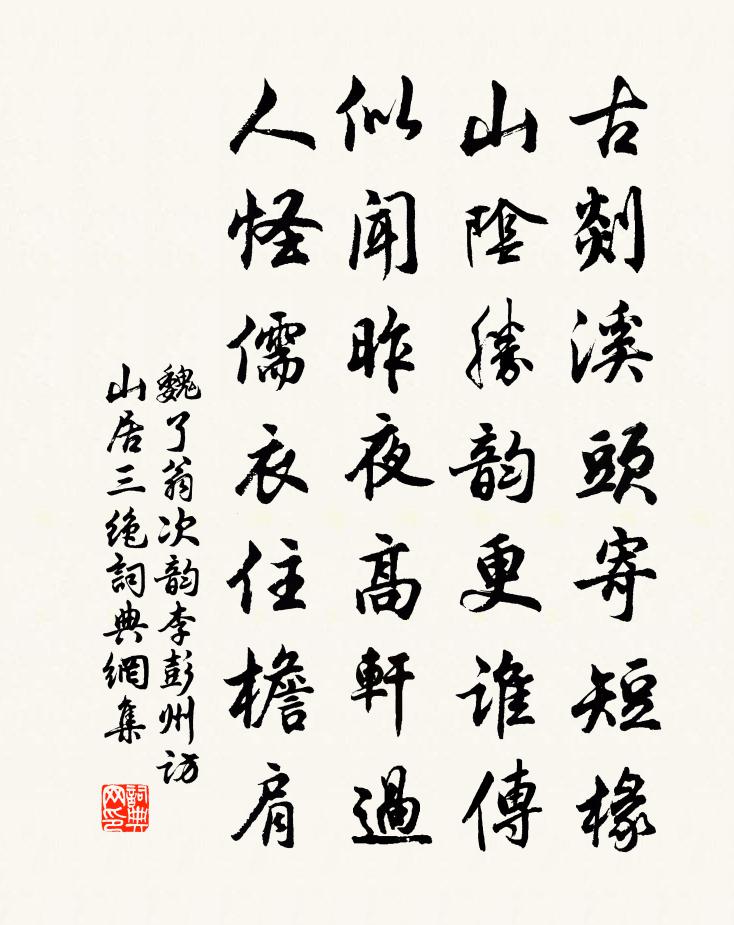 古剡溪頭寄短椽
山陰勝韵更誰傳
似聞昨夜高軒過
人怪儒衣住檐肩
魏了翁次韵李彭州访
山居三绝詞典網集
詞典网